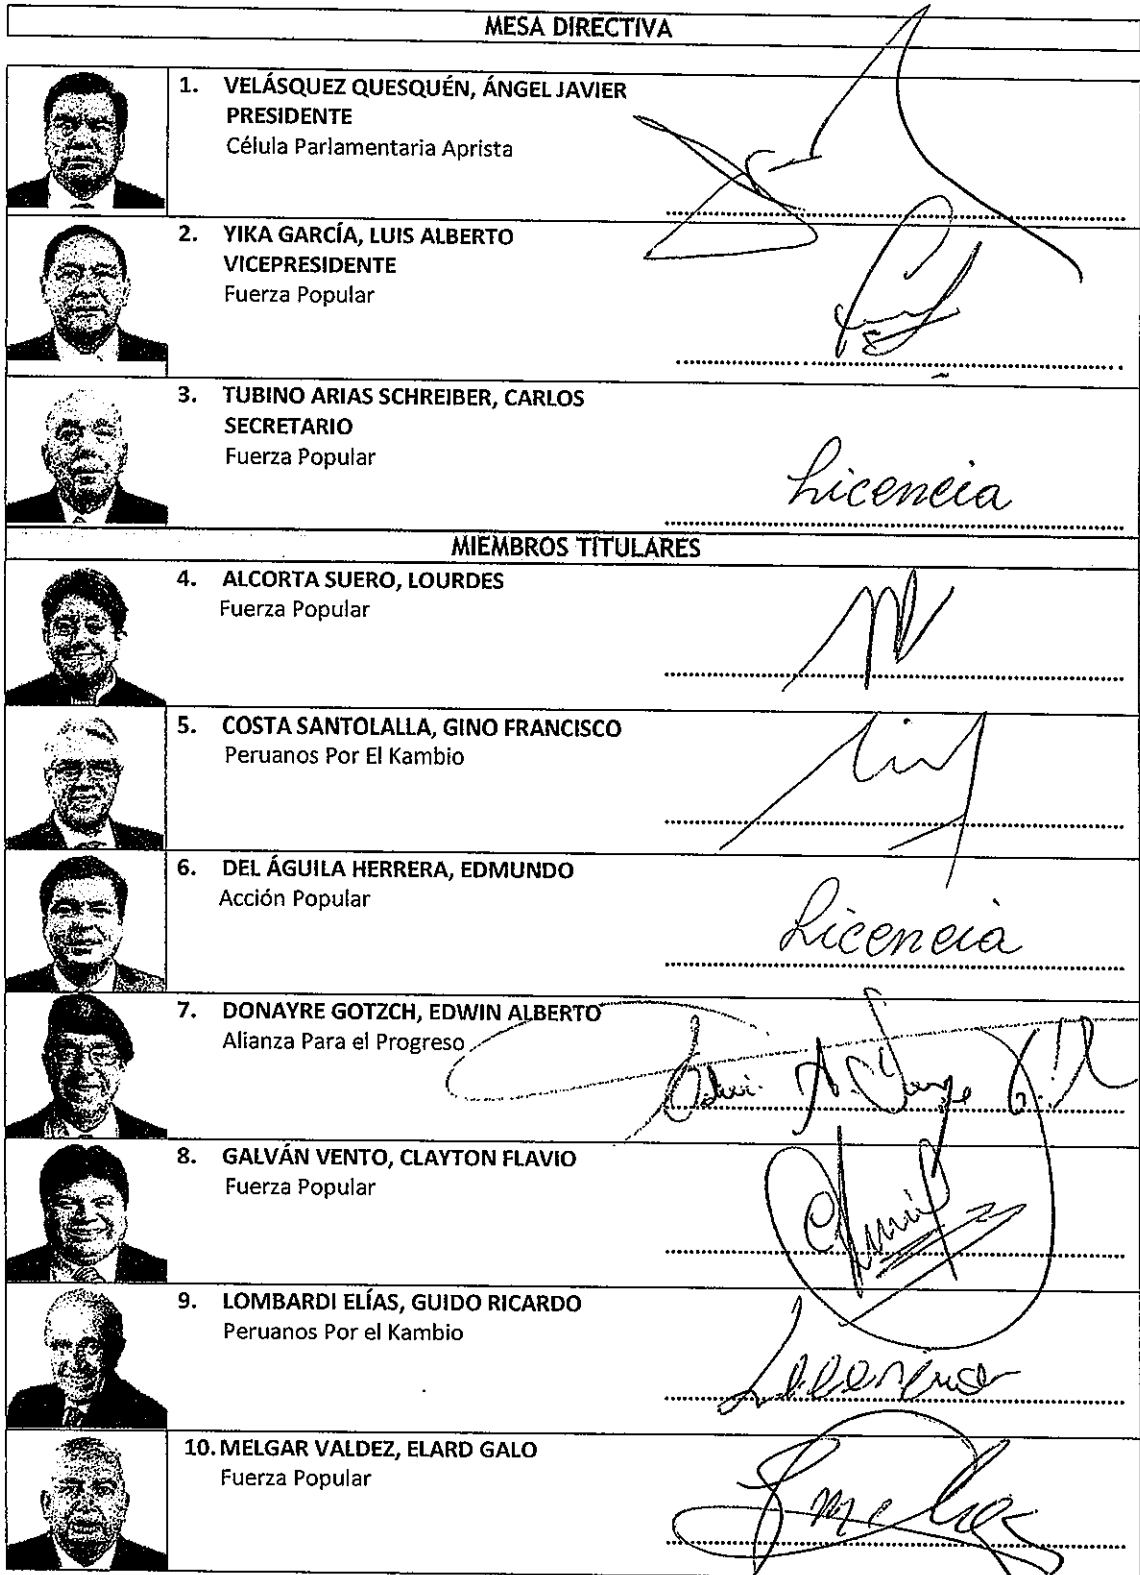 MESA DIRECTIVA
1. VELÁSQUEZ QUESQUÉN, ÁNGEL JAVIER
PRESIDENTE
Célula Parlamentaria Aprista
2. YIKA GARCÍA, LUIS ALBERTO
VICEPRESIDENTE
Fuerza Popular
3. TUBINO ARIAS SCHREIBER, CARLOS
SECRETARIO
Fuerza Popular
Licencia
MIEMBROS TITULARES
4. ALCORTA SUERO, LOURDES
Fuerza Popular
5. COSTA SANTOLALLA, GINO FRANCISCO
Peruanos Por El Kambio
6. DEL ÁGUILA HERRERA, EDMUNDO
Acción Popular
Licencia
7. DONAYRE GOTZCH, EDWIN ALBERTO
Alianza Para el Progreso
8. GALVÁN VENTO, CLAYTON FLAVIO
Fuerza Popular
9. LOMBARDI ELÍAS, GUIDO RICARDO
Peruanos Por el Kambio
10. MELGAR VALDEZ, ELARD GALO
Fuerza Popular